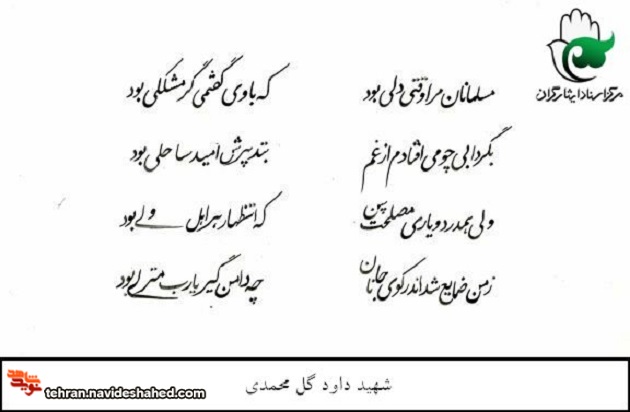 مرکز اسناد ایثارگران
مسلمانان مرا وقتی دلی بود که با وی گفتمی گر مشکلی بود
بگردابی چو می افتادم از غم بتدبیرش امید ساحلی بود
دلی همدرد و یاری مصلحت بین که استظهار هر اهل دلی بود
ز من ضایع شد اندر کوی جانان چه دامن گیر یارب منزلی بود
شهید داود گل محمدی
نوید شاهد
tehran.navideshahed.com